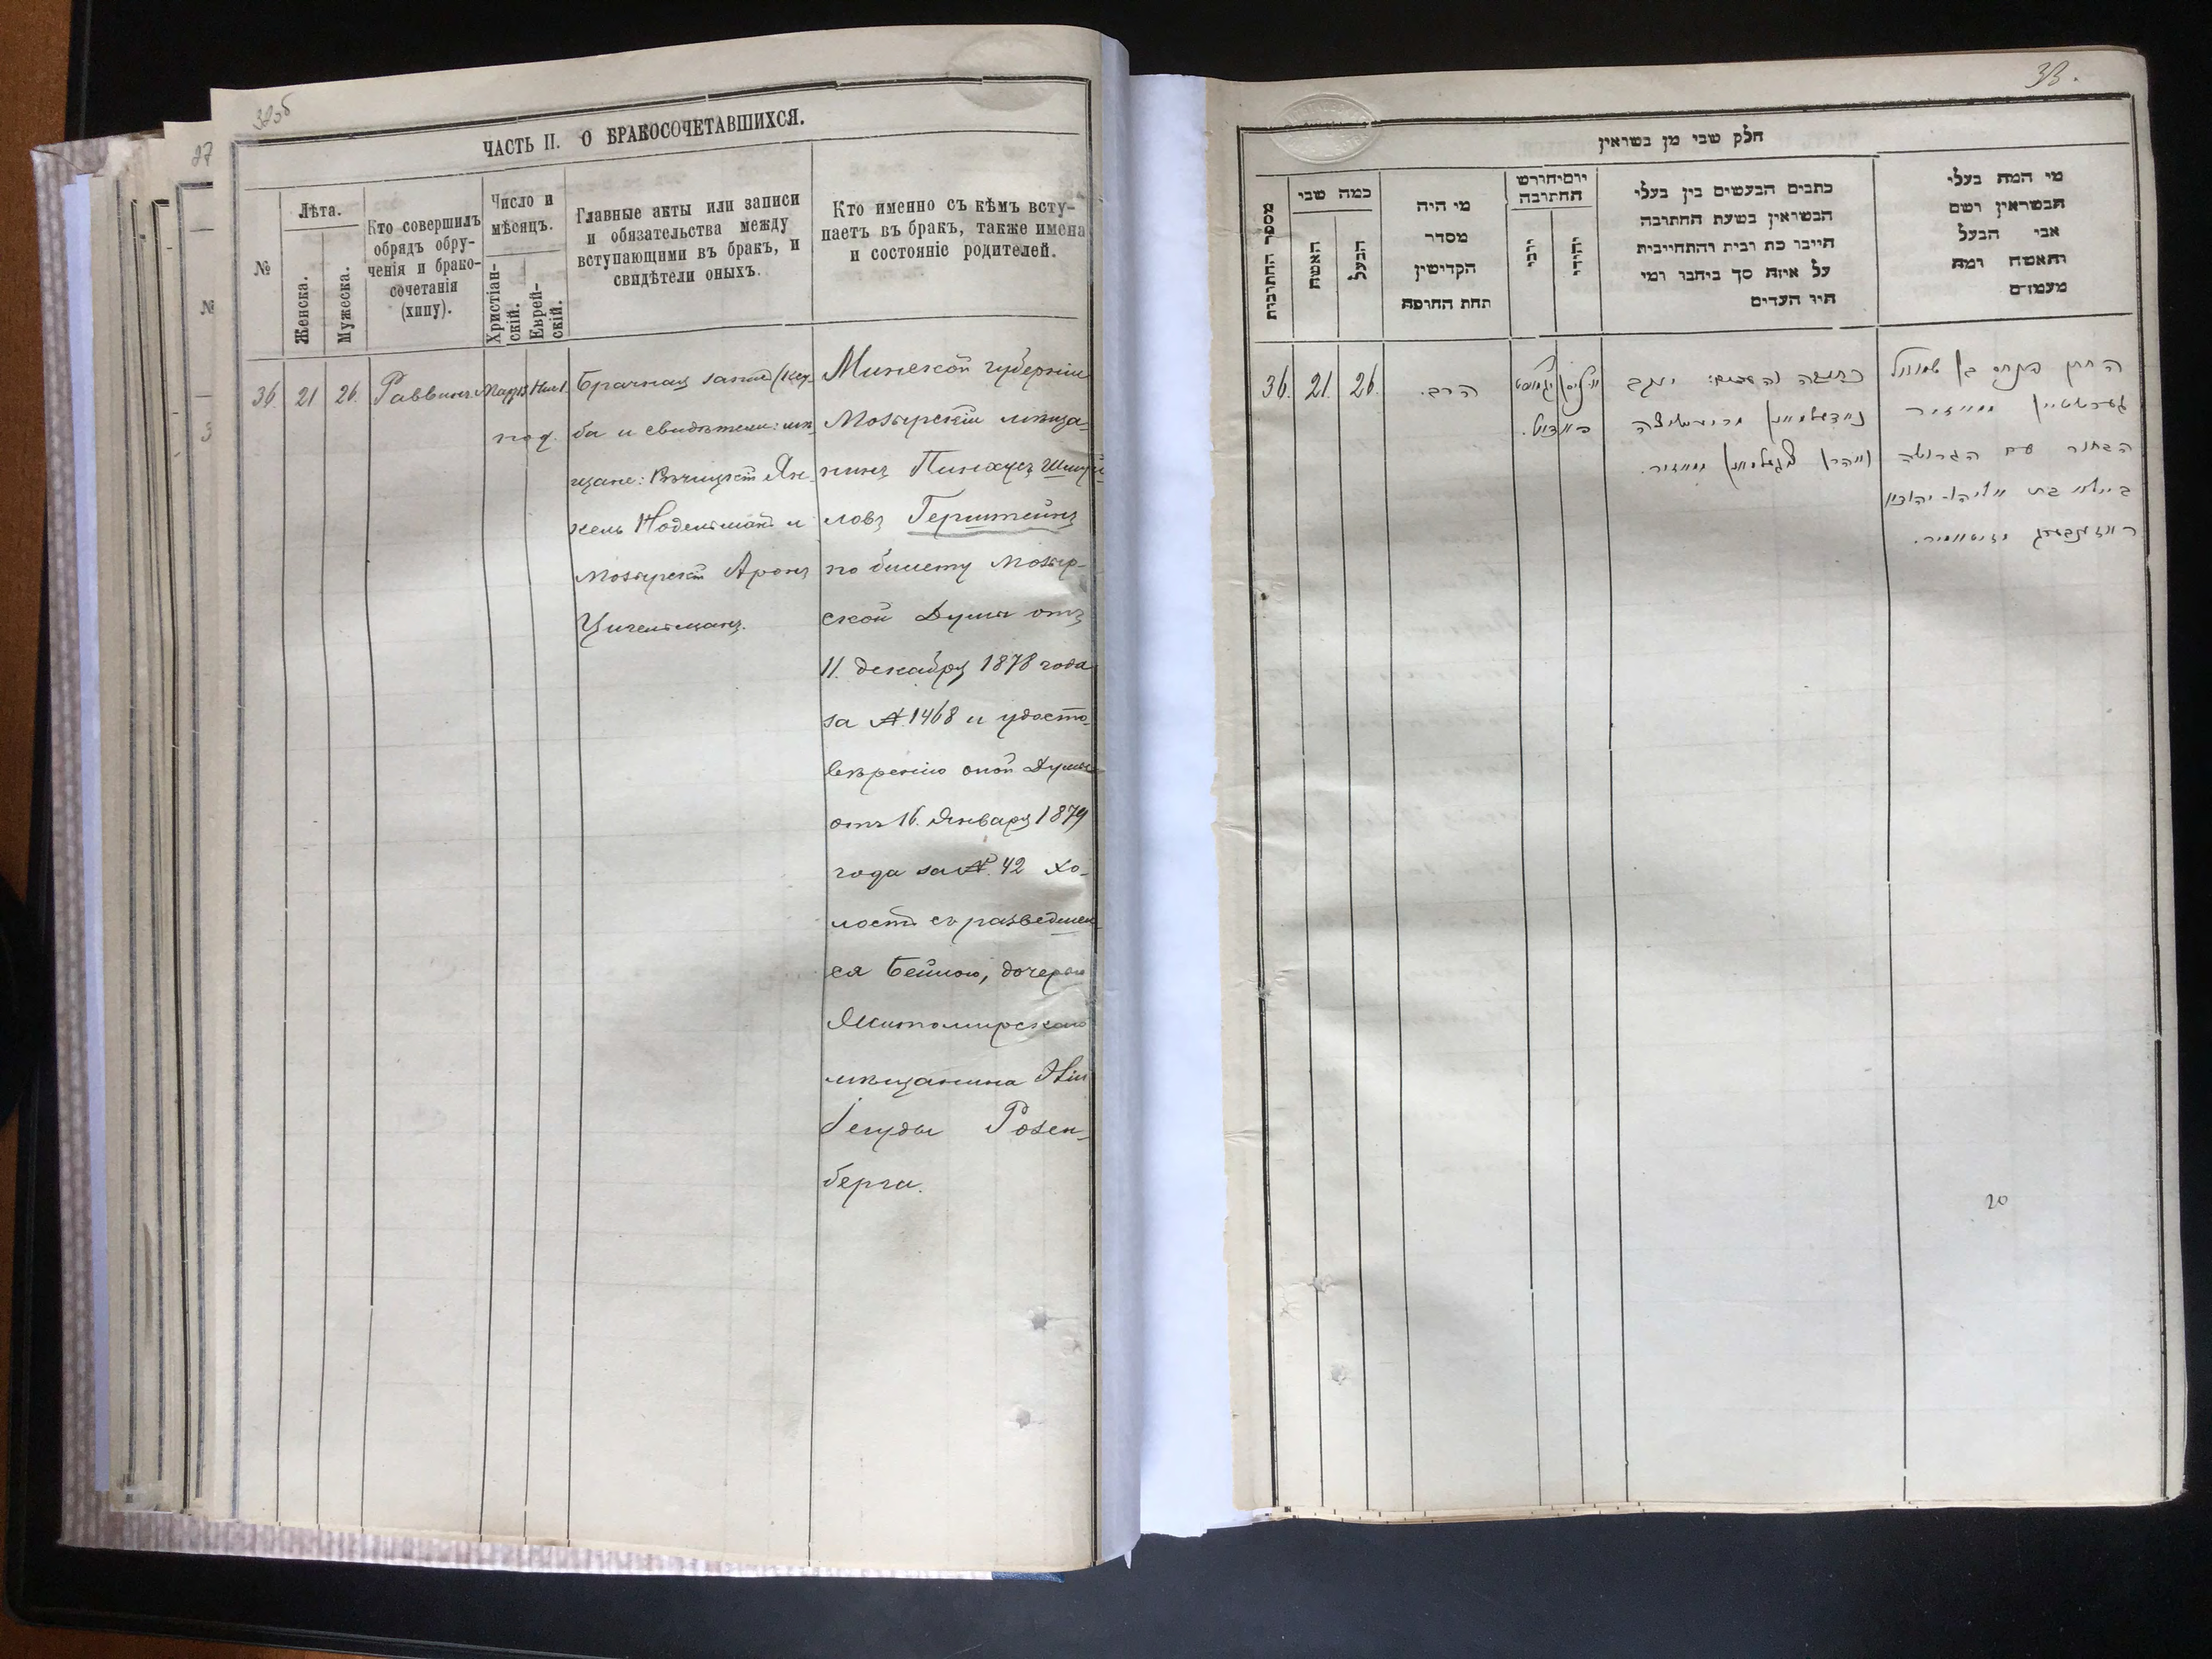 32об
ЧАСТЬ II. О БРАКОСОЧЕТАВШИХСЯ.
№
Лѣта.
Женска.
Мужеска.
Кто совершилъ
обрядъ обру-
ченія и брако-
сочетанія
(хипу).
Число и
мѣсяцъ.
Христіан-
скій.
Еврей-
скій.
Главные акты или записи
и обязательства между
вступающими въ бракъ, и
свидѣтели оныхъ.
Кто именно съ кѣмъ всту-
паетъ въ бракъ, также имена
и состояніе родителей.
36.
21
26.
Раввинъ.
Брачная запись (кету-
ба и свидѣтели: мѣ-
щане: Ян-
кель Нодельманъ и
Мозырскій Аронъ
Цигельманъ.
Минской губерніи
Мозырскій мѣща-
нинъ Пинхусъ Шмуй-
ловъ Герштейнъ
по билету Мозыр-
ской Думы отъ
11. декабря 1878 года
за №. 1468 и удосто-
вѣренію оной Думы
отъ 16. Января 1879
года за №. 42 хо-
лостъ съ разведшею-
ся Бейлою, дочерью
Житомирскаго
мѣщанина Эліи
Іегуды Розен-
берга.
27
№
3
33.
חלק שני מן נשואין
מספר החתונות
כמה שני
האשה
הבעל
מי היה
מסדר
הקדישין
תחת החופה
יום וחודש
החתונה
נוצרי
יהודי
כתבים הנעשים בין בעלי
הנשואין בשעת החתונה
היינו כת ובית והתחייבות
על איזה סך ביחנו ומי
היו העדים
מי המה בעלי
הנשואין ושם
אבי הבעל
והאשה ומה
מעמדם
36.
21.
26.
הרב.
החתן פינחס בן שמואל
גערשטיין ממאזיר
הבחור עם הגרושה
ביילא בת אליהו יהודא
ראזענבערג מזיטאמיר.
20